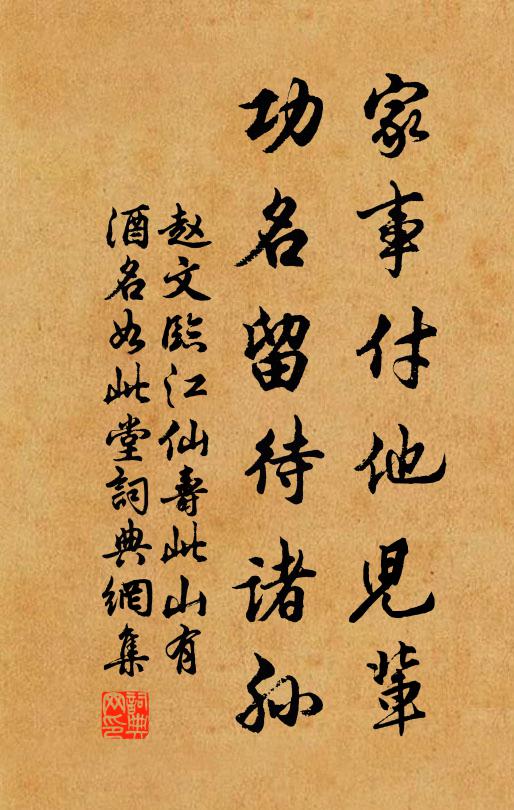 家事付他兒輩
功名留待諸孫
赵文臨江仙壽此山有
酒名如此堂詞典網集
詞典網印